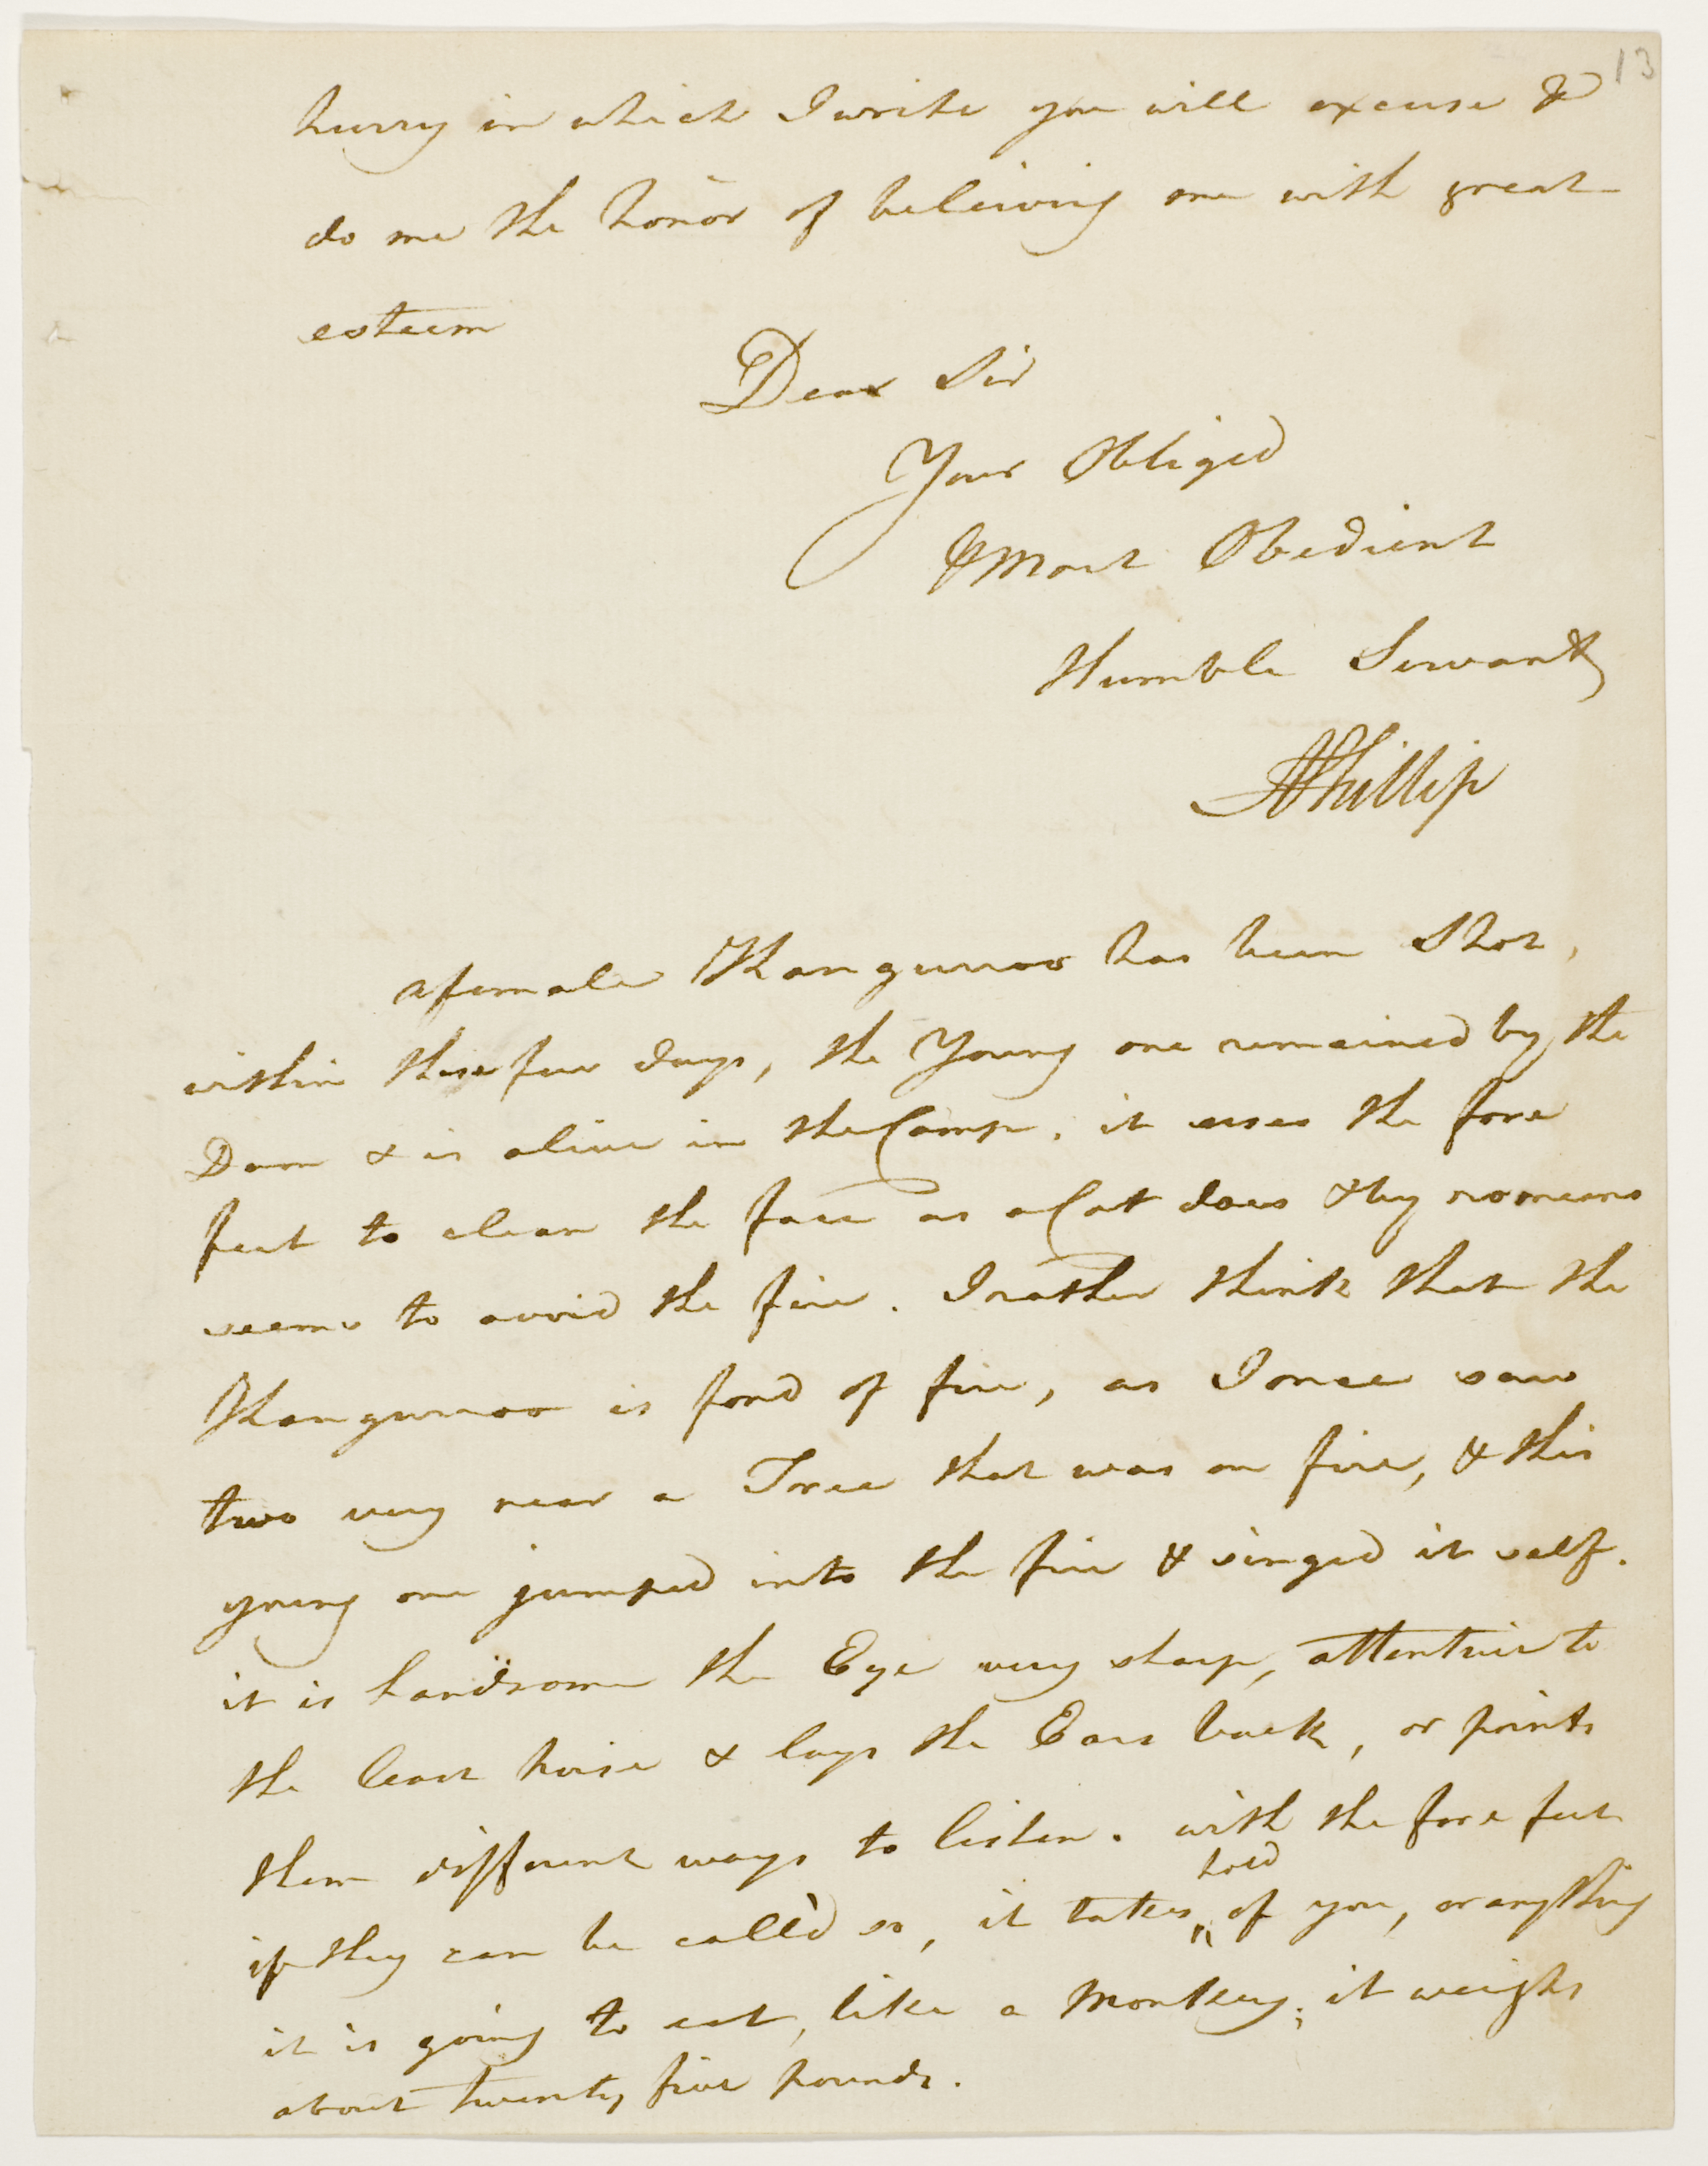 13
hurry in which I write you will excuse &
do me the honor of beleiving me with great
esteem
Dear Sir
Your Obliged
& Most Obedient
Humble Servant
APhillip
a female Kangurroo has been Shot,
within these few days, the Young one remained by the
Dam & is alive in the Camp, it uses the fore
feet to clean the face as a Cat does & by no means
seems to avoid the fire. I rather think that the
Kangurroo is fond of fire, as I once saw
two very near a Tree that was on fire, & this
young one jumped into the fire & singed it self.
it is handsome the Eye very sharp, attentive to
the least noise & lays the Ears back, or points
them different ways to listen. with the fore feet
hold
if they can be call'd so, it takes " of you, or anything
it is going to eat, like a Monkey; it weighs
about twenty five pounds.